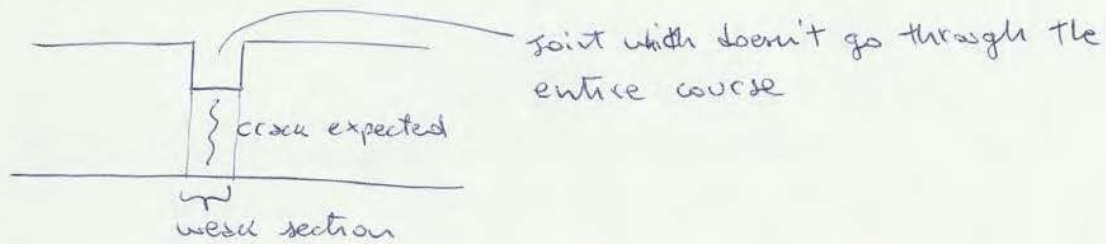 Joint which doesn't go through the
entire course
crack expected
weak section